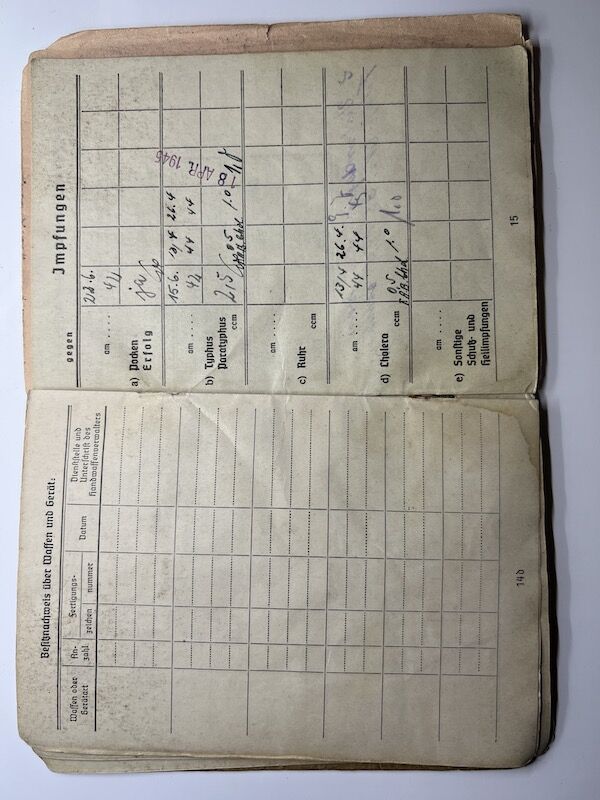 Besitznachweis über Waffen und Gerät:
Waffen oder Gerätart
An-zahl
Fertigungs-
zeichen
nummer
Datum
Dienststelle und Unterschrift des Handwaffenverwalters
14d
Impfungen
gegen
a) Pocken
am . . . . .
Erfolg
6.
42
ja
b) Typhus
Paratyphus
am . . . . .
ccm
15.6. 13/4 26.4
42 44 44
2,5 0,5 1.0
18 APR. 1945
c) Ruhr
am . . . . .
ccm
d) Cholera
am . . . . .
ccm
13/4 26.4.
44 44
0,5 1.0
e) Sonstige
Schutz- und
Heilimpfungen
am . . . . .
15